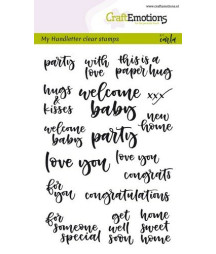 CraftEmotions
My Handletter clear stamps
Carla
party with love this is a paper hug
hugs & kisses welcome baby xxx
welcome baby party new home
love you love you congrats
for you congratulations
for someone special get well soon home sweet home